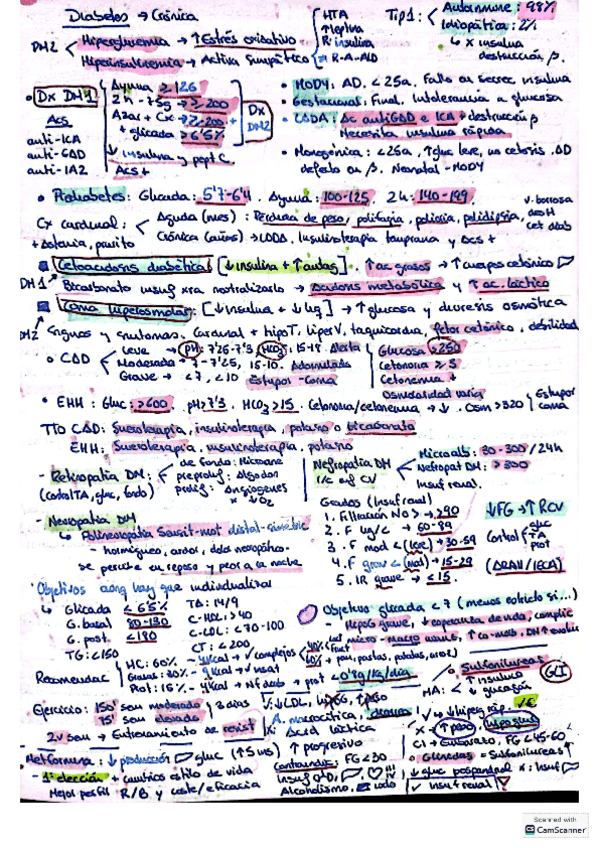 Diabetes → Crónica
HTA
↑ leptina
R insulina
R-A-AlD
Tip1: Autoinmune: 98%
Idiopática: 2%
↳ x insulina
destrucción β.
DM2 < Hiperglucemia → ↑ Estrés oxidativo
Hiperinsulinemia → Activa Simpático
• Dx DM1
Acs
anti-ICA
anti-GAD
anti-IA2
Ayuna ≥ 126
2h - 75g → ≥ 200
Azar + Cx → ≥ 200 +
+ glicada → ≥ 6'5%
Dx DM2
↓ insulina y pept C
Acs +
• MODY: AD. < 25a. Fallo en secrec insulina
• Gestacional: Final. Intolerancia a glucosa
• LADA: Ac antiGAD e ICA + destrucción β
Necesita insulina rápida
• Monogénica: < 25a, ↑ gluc leve, no cetosis. AD
defecto en β. Neonatal - MODY
• Prediabetes: Glicada: 5'7-6'4. Ayuna: 100-125. 2h: 140-199
Cx cardinal: < Aguda (mes): Pérdida de peso, polifagia, poliuria, polidipsia,
v. borrosa
desH
cet diab
+ astenia, prurito
Crónica (años) → LADA. Insulinoterapia temprana y acs +
Cetoacidosis diabética [↓ insulina + ↑ autas]. ↑ ac grasos → ↑ cuerpos cetónicos
DM1 Bicarbonato insuf xra neutralizarlo → Acidosis metabólica y ↑ ac. láctico
Coma hiperosmolar: [↓ insulina + ↓ liq] → ↑ glucosa y diuresis osmótica
DM2 Signos y síntomas. Cardinal + hipoT. hiperV, taquicardia, fetor cetónico, debilidad
• CAD
Leve → pH: 7'25-7'3 HCO3: 15-18. Alerta
Moderada → 7-7'25, 15-10. Adormilada
Grave → < 7, < 10 Estupor-Coma
Glucosa > 250
Cetonuria ≥ 5
Cetonemia +
Osmolaridad varía
• EHH: Gluc: > 600. pH > 7'3. HCO3 > 15. Cetonuria/cetonemia → ↓. Osm > 320
Estupor
coma
TTO CAD: Sueroterapia, insulinoterapia, potasio o bicarbonato
EHH: Sueroterapia, insulinoterapia, potasio
- Retinopatía DM:
(control TA, gluc, fondo)
de fondo: Microane
preprolif: Algodon
prolif: Angiogenes
x ↓O2
Nefropatía DM
Microalb: 30-300/24h
Nefropat DM: > 300
Insuf renal.
- Neuropatía DM
↳ Polineuropatía Sensit-mot distal-simétric
- hormigueo, ardor, dolor neuropático.
se percibe en reposo y peor a la noche
Grados (Insuf renal)
1. Filtración No > → ≥ 90
2. F lig/c → 60-89
3. F mod < (leve) → 30-59
4. F grav < (mod) → 15-29
5. IR grave → < 15.
↓FG → ↑ RCV
Control
gluc
TA
prot
(ARAII/IECA)
Objetivos aunq hay que individualizar
↳ Glicada < 6'5%
G. basal 80-130
G. post. < 180
TG: < 150
TA: 14/9
C-HDL: > 40
C-LDL: < 70-100
CT: < 200
Objetivo glicada < 7 (menos estricto si...)
- HipoG grave, ↓ esperanza de vida, complic
Recomendac
HC: 60% - 4Kcal → complejos
Grasas: 30% - 9Kcal → insat
Prot: 15% - 4Kcal → Nf diab → prot < 0'8g/kg/día
60% → pan, pastas, patatas, arroz
Ejercicio: 150' sem moderado
75' sem elevado
3 días
2v sem → Entrenamiento de resist
V: ↓ LDL,
A. macrocítica,
X: Acid láctica
↑ progresivo
• Sulfonilureas
MA: ↑ insulina
↓ glucagón
X → ↑ peso, hipogluc
CI → Embarazo, FG < 45-60
Metformina: ↓ producción gluc (↑ Sens)
- 1ª elección + cambios estilo de vida
Mejor perfil R/B y coste/eficacia
Contraindic: FG < 30
Alcoholismo,
• Glinidas = Sulfonilureas
↓ gluc posprandial
✓ insuf renal
Scanned with
CamScanner